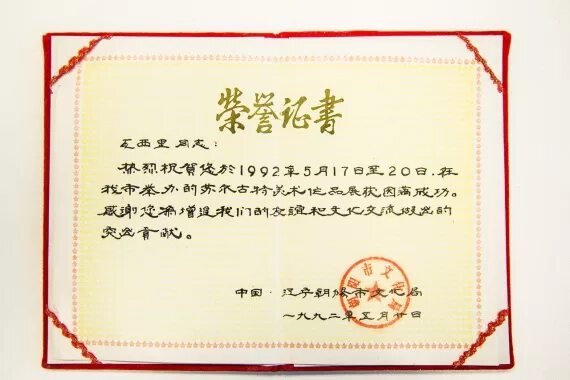 荣誉证书
瓦西里同志：
热烈祝賀您於1992年5月17日至20日，在
我市举办的苏尔古特美术作品展获圆满成功。
感谢您為增进我们的友谊和文化交流做出的
突出貢献。
中国·辽宁朝陽市文化局
一九九二年五月廿日
朝阳市文化局